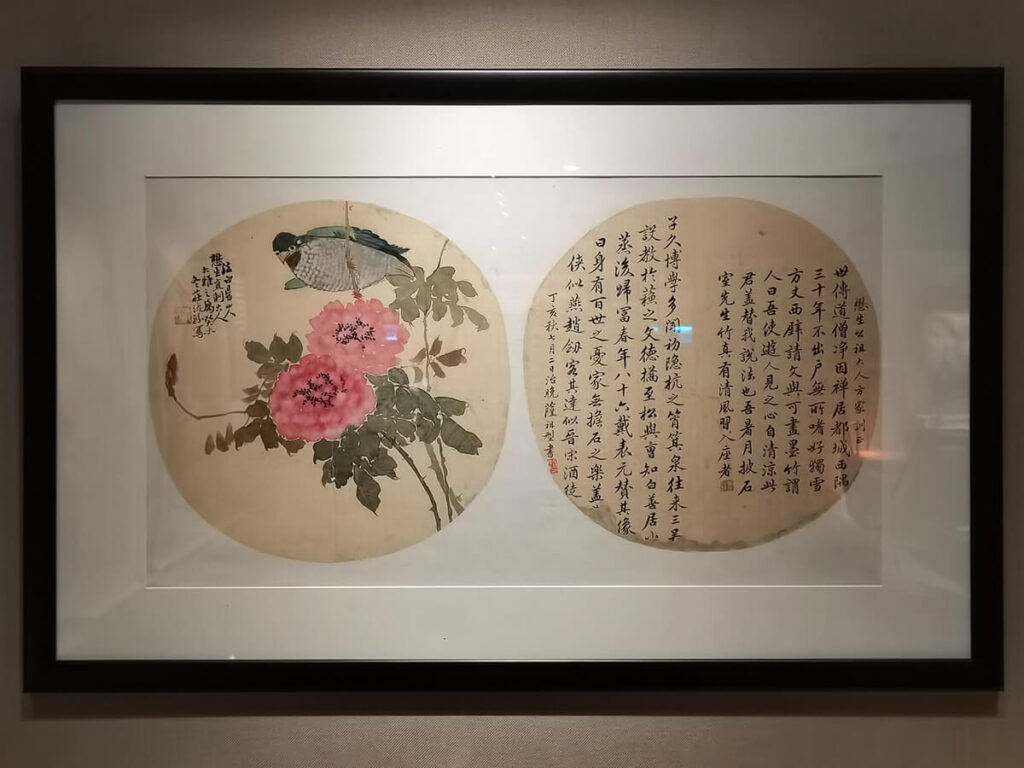 懋生公祖大人方家訓正
世傳道僧淨因禅居都城西隅
三十年不出户無所嗜好獨雪
方丈西壁請文與可畫墨竹謂
人曰吾使遊人見之心自清涼此
君蓋替我說法也吾暑月披石
室先生竹真有清風習入座者
子久博學多聞初隐杭之筲箕泉往来三吴
說教於蘓之文德橋至松與曹知白善居小
蒸後歸富春年八十六戴表元贊其像
曰身有百世之憂家無擔石之樂蓋
俠似燕趙劒客其達似晉宋酒徒
丁亥秋七月二日治晚薩祖型書
懋生
大人
之屬